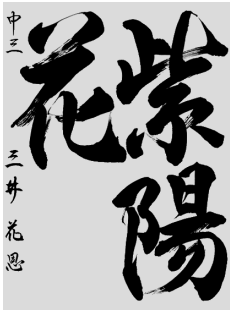 紫陽
花
中三 三井花恩